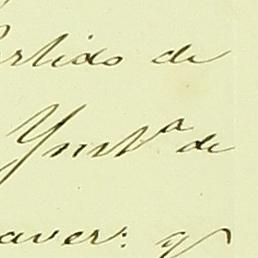 artido de
Ynstª de
aver: q